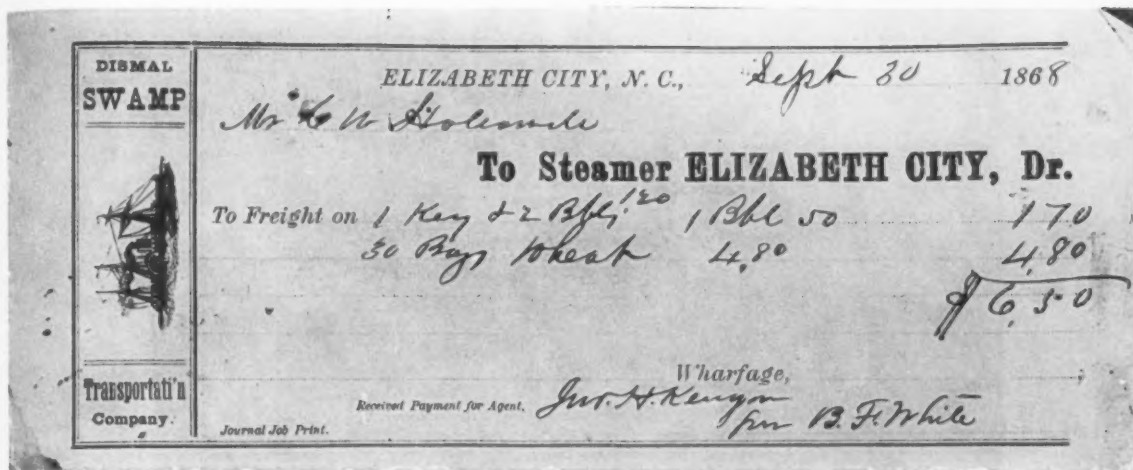 DISMAL
SWAMP
Transportati'n
Company.
ELIZABETH CITY, N. C., Sept 30 1868
Mr C W
To Steamer ELIZABETH CITY, Dr.
To Freight on 1 Keg & 2 Bbls 1.20 1 Bbl 50 1 70
30 Bags Wheat 4,80 4,80
$ 6,50
Wharfage,
Received Payment for Agent, Jno. H. Kenyon
Journal Job Print.
per B. F. White